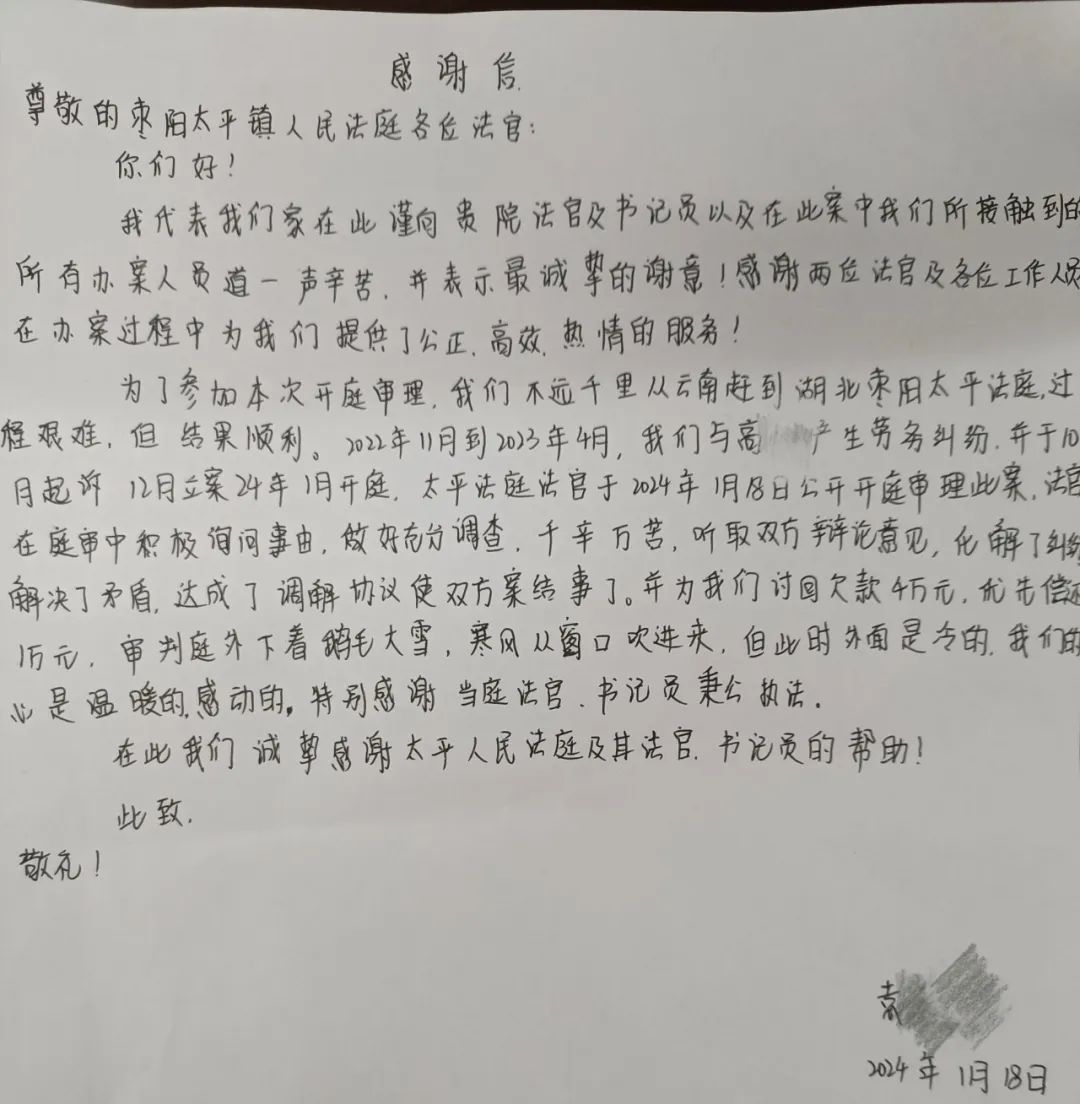 感谢信.
尊敬的枣阳太平镇人民法庭各位法官:
你们好!
我代表我们家在此谨向贵院法官及书记员以及在此案中我们所接触到的
所有办案人员道一声辛苦.并表示最诚挚的谢意!感谢两位法官及各位工作人员
在办案过程中为我们提供了公正.高效.热情的服务!
为了参加本次开庭审理.我们不远千里从云南赶到湖北枣阳太平法庭.过
程艰难.但结果顺利。2022年11月到2023年4月,我们与高 产生劳务纠纷.并于10
月起诉12月立案24年1月开庭.太平法庭法官于2024年1月18日公开开庭审理此案.法官
在庭审中积极询问事由,做好充分调查.千辛万苦,听取双方辩论意见,化解了纠纷
解决了矛盾.达成了调解协议使双方案结事了。并为我们讨回欠款4万元.优先偿还
1万元.审判庭外下着鹅毛大雪,寒风从窗口吹进来,但此时外面是冷的.我们的
心是温暖的.感动的。特别感谢当庭法官.书记员秉公执法.
在此我们诚挚感谢太平人民法庭及其法官.书记员的帮助!
此致.
敬礼!
袁
2024年1月18日